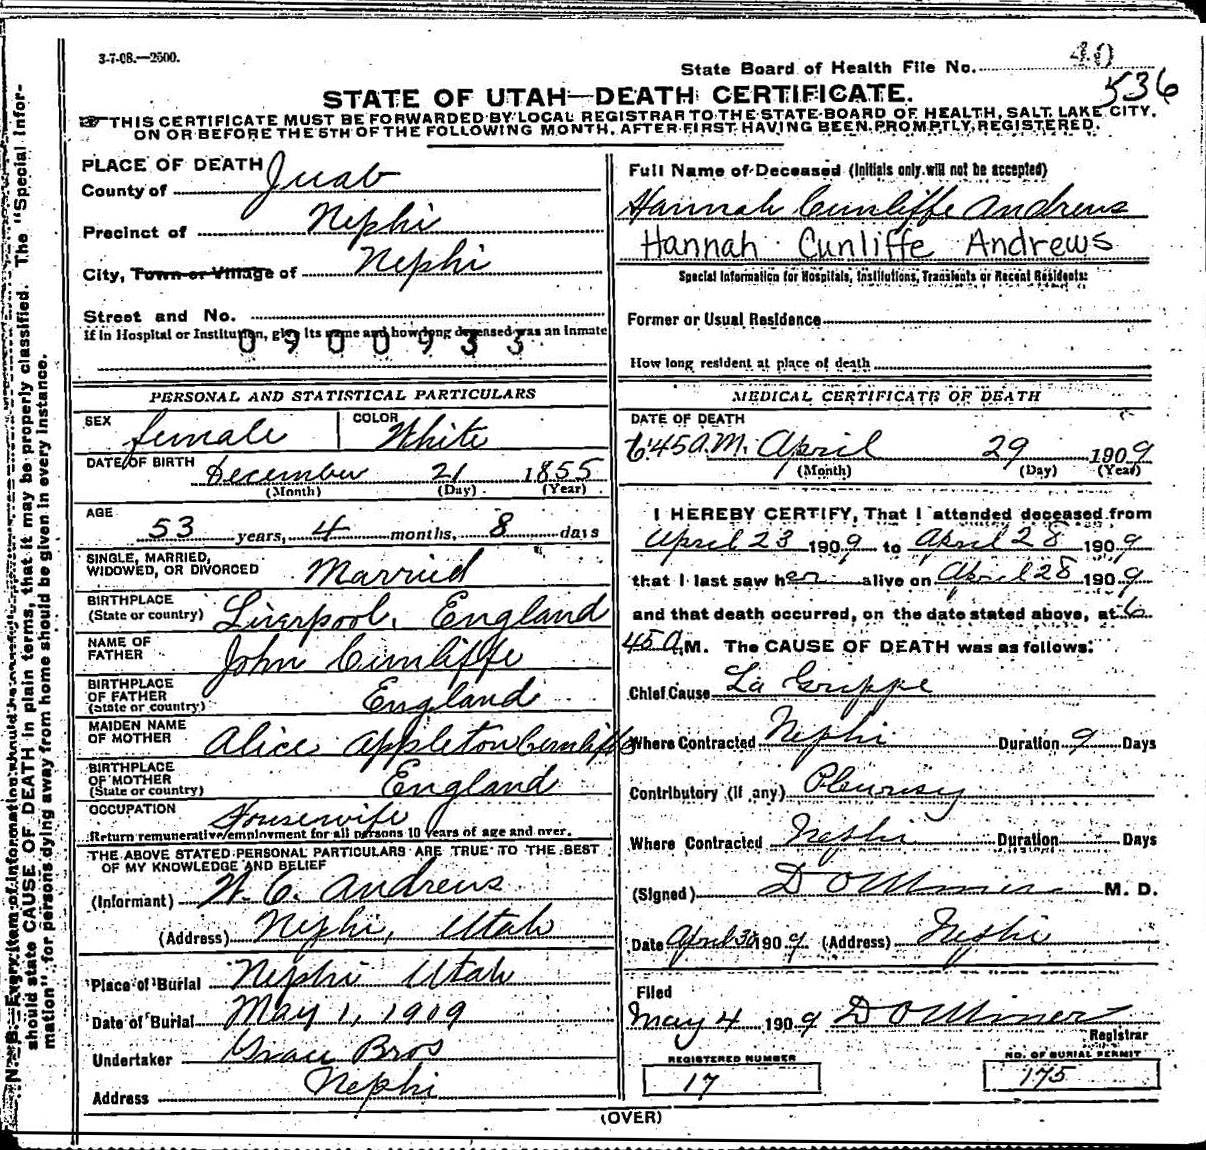 3-7-08.—2500.
State Board of Health File No. 40
536
STATE OF UTAH—DEATH CERTIFICATE.
THIS CERTIFICATE MUST BE FORWARDED BY LOCAL REGISTRAR TO THE STATE BOARD OF HEALTH, SALT LAKE CITY,
ON OR BEFORE THE 5TH OF THE FOLLOWING MONTH, AFTER FIRST HAVING BEEN PROMPTLY REGISTERED.
PLACE OF DEATH
County of Juab
Precinct of Nephi
City, Town or Village of Nephi
Street and No.
If in Hospital or Institution, give its name and how long deceased was an inmate
0900933
Full Name of Deceased (Initials only will not be accepted)
Hannah Cunliffe Andrews
Hannah Cunliffe Andrews
Special Information for Hospitals, Institutions, Transients or Recent Residents:
Former or Usual Residence
How long resident at place of death
PERSONAL AND STATISTICAL PARTICULARS
SEX female COLOR White
DATE OF BIRTH December 21 1855
(Month) (Day) (Year)
AGE 53 years, 4 months, 8 days
SINGLE, MARRIED,
WIDOWED, OR DIVORCED Married
BIRTHPLACE
(State or country) Liverpool, England
NAME OF
FATHER John Cunliffe
BIRTHPLACE
OF FATHER
(State or country) England
MAIDEN NAME
OF MOTHER Alice Appleton Cunliffe
BIRTHPLACE
OF MOTHER
(State or country) England
OCCUPATION Housewife
Return remunerative employment for all persons 10 years of age and over.
THE ABOVE STATED PERSONAL PARTICULARS ARE TRUE TO THE BEST
OF MY KNOWLEDGE AND BELIEF
(Informant) W. C. Andrews
(Address) Nephi, Utah
Place of Burial Nephi Utah
Date of Burial May 1, 1909
Undertaker Bros
Address Nephi
MEDICAL CERTIFICATE OF DEATH
DATE OF DEATH
6:45 A.M. April 29 1909
(Month) (Day) (Year)
I HEREBY CERTIFY, That I attended deceased from
April 23 1909 to April 28 1909
that I last saw her alive on April 28 1909
and that death occurred, on the date stated above, at 6
45 A.M. The CAUSE OF DEATH was as follows:
Chief Cause La Grippe
Where Contracted Nephi Duration 9 Days
Contributory (if any) Pleurisy
Where Contracted Nephi Duration Days
(Signed) D O Miner M. D.
Date April 30 1909 (Address) Nephi
Filed
May 4 1909 D O Miner
Registrar
REGISTERED NUMBER
17
NO. OF BURIAL PERMIT
175
(OVER)
N. B.—Every item of information should be
should state CAUSE OF DEATH in plain terms, that it may be properly classified. The "Special Infor-
mation" for persons dying away from home should be given in every instance.